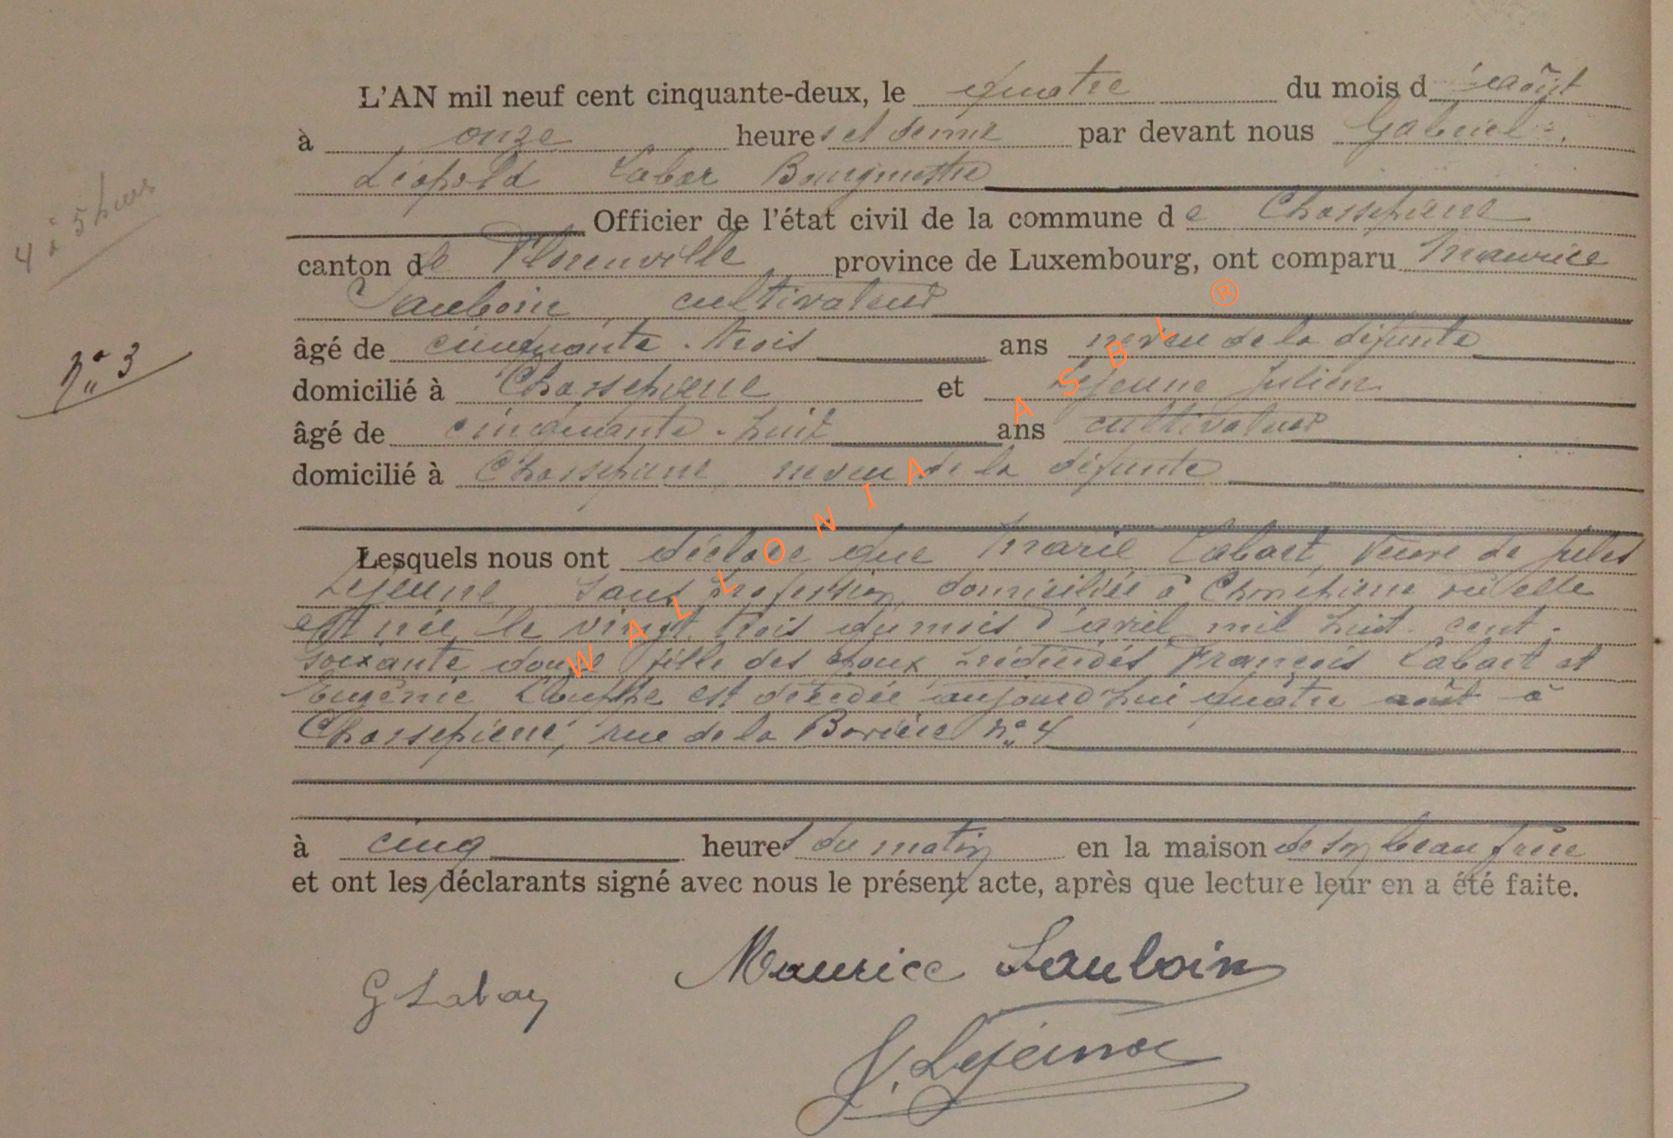 L'AN mil neuf cent cinquante-deux, le quatre du mois d août
à onze heures et demie par devant nous Gabriel
Léopold Labar Bourgmestre
Officier de l'état civil de la commune de Chassepierre
canton de Florenville province de Luxembourg, ont comparu Maurice
Sauboin, cultivateur
4 à 5 heures
âgé de cinquante-trois ans neveu de la défunte
n° 3
domicilié à Chassepierre et Lejeune Julien
âgé de cinquante-huit ans cultivateur
domicilié à Chassepierre neveu de la défunte
Lesquels nous ont déclaré que Marie Labart, veuve de Jules
Lejeune sans profession domiciliée à Chassepierre où elle
est née le vingt trois du mois d'avril mil huit cent
soixante douze fille des époux prédécédés François Labart et
Eugénie est décédée aujourd'hui quatre août à
Chassepierre, rue de la n° 4
à cinq heures du matin en la maison de son beau frère
et ont les déclarants signé avec nous le présent acte, après que lecture leur en a été faite.
Maurice Sauboin
G Labar
J. Lejeune
WALLONIA ASBL ®